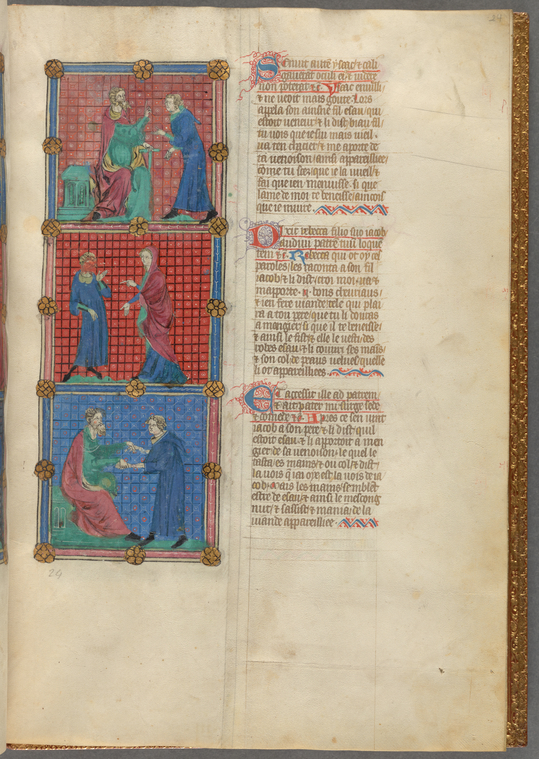 Senuit autē ysaac & cali
gaverāt oculi ei⁹ & videre
non poterat & c̄. Ysaac envilli
& ne veoit mais goute. Lors
apela son ainsne fil esau qui
estoit veneur & li dist biau fil
tu vois que ie sui mais vieil.
va ten chacier & me aporte de
ta venoison ainsi appareilliee
come tu sces que ie la vueil &
fai que ien menuisse. si que
lame de moi te beneisse aincois
que ie muire.
Dixit rebeca filio suo iacob
audivi patrē tuū loquē
tem & c̄. Rebeca qui ot oy ces
paroles les raconta a son fil
iacob & li dist croi moi. va &
maporte .ij. bons chevriaus
& ien fere viande tele qui plai
ra a ton pere que tu li donras
a mengier si que il te beneisse
& ainsi le fist & elle le vesti des
robes esau & li couvri ses mais
& son col de piaus velues quelle
li ot appareillies.
Et accessit ille ad patrem
& ait pater mi surge sede
& comede & c̄. Apres ce sen vint
iacob a son pere & li dist quil
estoit esau & li aportoit a men
gier de sa venoison. le quel le
tasta es mains & ou col & dist
la vois q̄ iai oye est la vois de ia
cob. Mais les mains semblēt
estre de esau & ainsi le mescong
nut & sassist & manja de la
viande appareilliee.
24